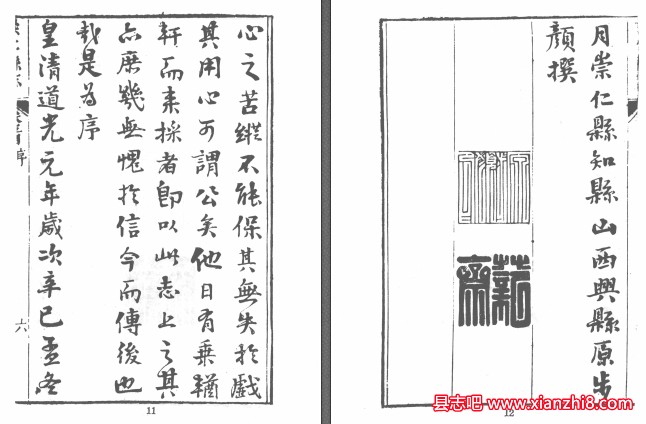 心之苦縱不能保其無失於戲
其用心可謂公矣他日有乗輶
軒而来採者卽以此志上之其
亦庶幾無愧於信今而傳後也
哉是為序
皇清道光元年歲次辛巳孟冬
六
11
月崇仁縣知縣山西興縣原步
顏撰
12
县志吧-www.xianzhi8.com